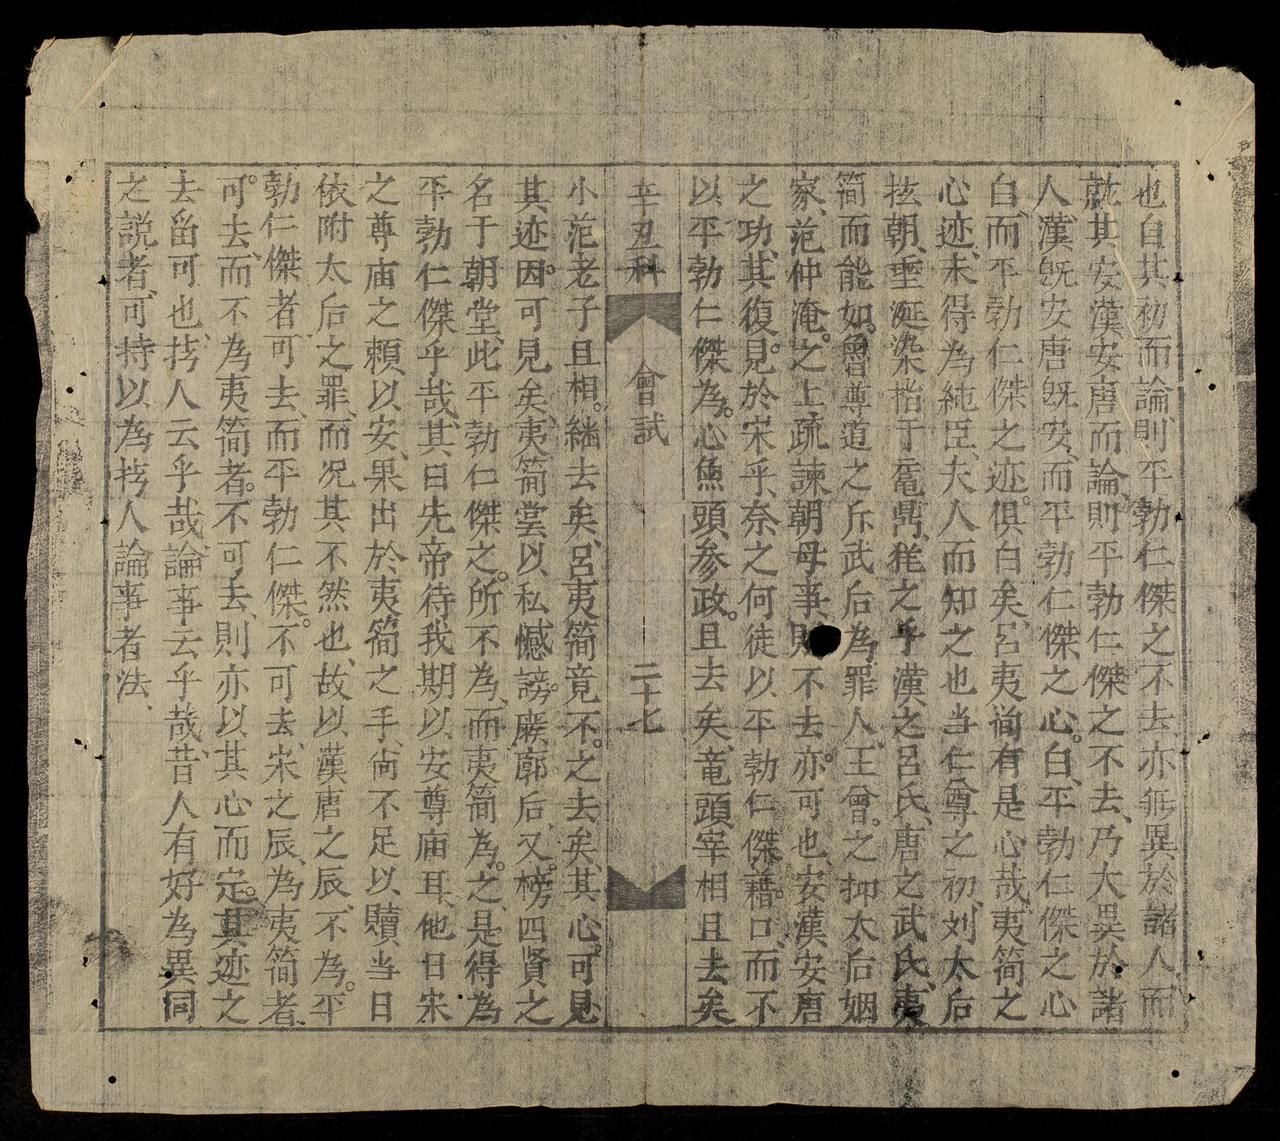 也自其初而論則平勃仁傑之不去亦無異於諸人而
就其安漢安唐而論則平勃仁傑之不去乃大異於諸
人漢既安唐既安而平勃仁傑之心白平勃仁傑之心
白而平勃仁傑之迹俱白矣呂夷简有是心哉夷简之
心迹未得為純臣夫人而知之也当仁尊之初刘太后
抂朝垂涎染指于鼋鼎徃之乎漢之呂氏唐之武氏夷
简而能如魯尊道之斥武后為罪人王曾之抑太后姻
家范仲淹之上疏諫朝母亊則不去亦可也安漢安唐
之功其復見於宋乎奈之何徒以平勃仁傑藉口而不
以平勃仁傑為心魚頭参政且去矣竜頭宰相且去矣
辛丑科 會試 二十七
小范老子且相継去矣呂夷简竟不之去矣其心可見
其迹因可見矣夷简甞以私憾謗廢廓后又榜四賢之
名于朝堂此平勃仁傑之所不為而夷简為之是得為
平勃仁傑乎哉其曰先帝待我期以安尊庙耳他日宋
之尊庙之頼以安果出於夷简之手尚不足以贖当日
依附太后之罪而况其不然也故以漢唐之辰不為平
勃仁傑者可去而平勃仁傑不可去宋之辰為夷简者
可去而不為夷简者不可去則亦以其心而定其迹之
去畱可也㧯人云乎哉論事云乎哉昔人有好為異同
之説者可持以為㧯人論事者法